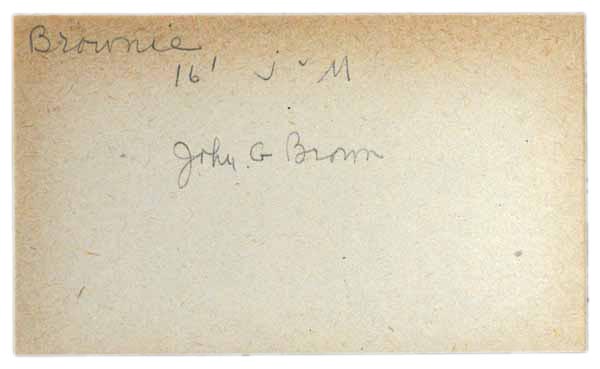 Brownie
16' J " M
John G Brown